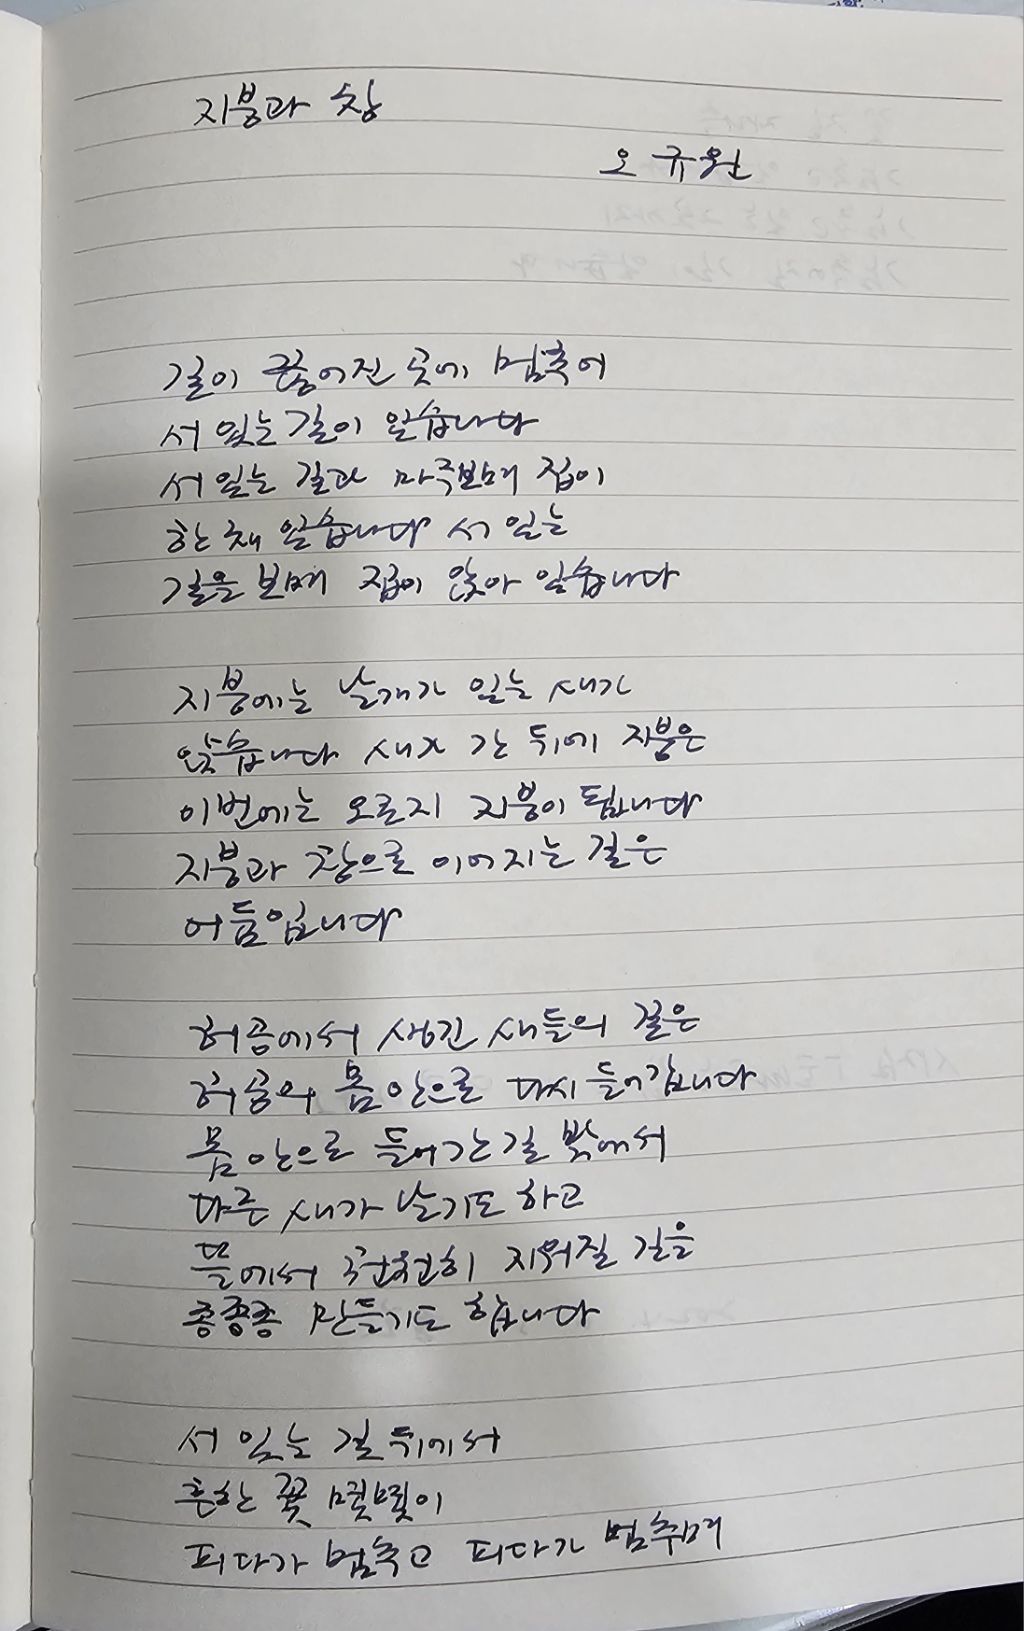 지붕과 창
오 규원
길이 끊어진 곳에 멈추어
서 있는 길이 있습니다
서 있는 길과 마주보며 집이
한 채 있습니다 서 있는
길을 보며 집이 앉아 있습니다
지붕에는 날개가 있는 새가
앉습니다 새가 간 뒤에 지붕은
이번에는 오로지 지붕이 됩니다
지붕과 창으로 이어지는 길은
어둠입니다
허공에서 생긴 새들의 길은
허공의 몸 안으로 다시 들어갑니다
몸 안으로 들어간 길 밖에서
다른 새가 날기도 하고
뜰에서 천천히 지워질 길을
종종종 만들기도 합니다
서 있는 길 뒤에서
흔한 꽃 몇몇이
피다가 멈추고 피다가 멈추며